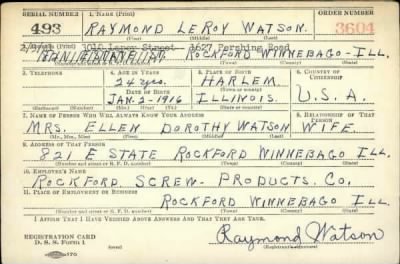 SERIAL NUMBER 1. NAME (Print) ORDER NUMBER
493 RAYMOND LEROY WATSON. 3604
(First) (Middle) (Last)
Street 1627 Pershing Road
ROCKFORD WINNEBAGO - ILL.
(Town) (County) (State)
3. TELEPHONE 4. AGE IN YEARS 5. PLACE OF BIRTH 6. COUNTRY OF CITIZENSHIP
24 yrs. HARLEM
DATE OF BIRTH
JAN. 2 - 1916 ILLINOIS. U.S.A.
(Exchange) (Number) (Mo.) (Day) (Yr.) (State or country)
7. NAME OF PERSON WHO WILL ALWAYS KNOW YOUR ADDRESS 8. RELATIONSHIP OF THAT PERSON
MRS. ELLEN DOROTHY WATSON WIFE
(Mr., Mrs., Miss) (First) (Middle) (Last)
9. ADDRESS OF THAT PERSON
821 E STATE ROCKFORD WINNEBAGO ILL
(Number and street or R. F. D. number) (Town) (County) (State)
10. EMPLOYER'S NAME
ROCKFORD. SCREW. PRODUCTS. CO.
11. PLACE OF EMPLOYMENT OR BUSINESS
ROCKFORD WINNEBAGO ILL
(Number and street or R. F. D. number) (Town) (County) (State)
I AFFIRM THAT I HAVE VERIFIED ABOVE ANSWERS AND THAT THEY ARE TRUE.
REGISTRATION CARD
D. S. S. Form 1 Raymond Watson
(Registrant's signature)